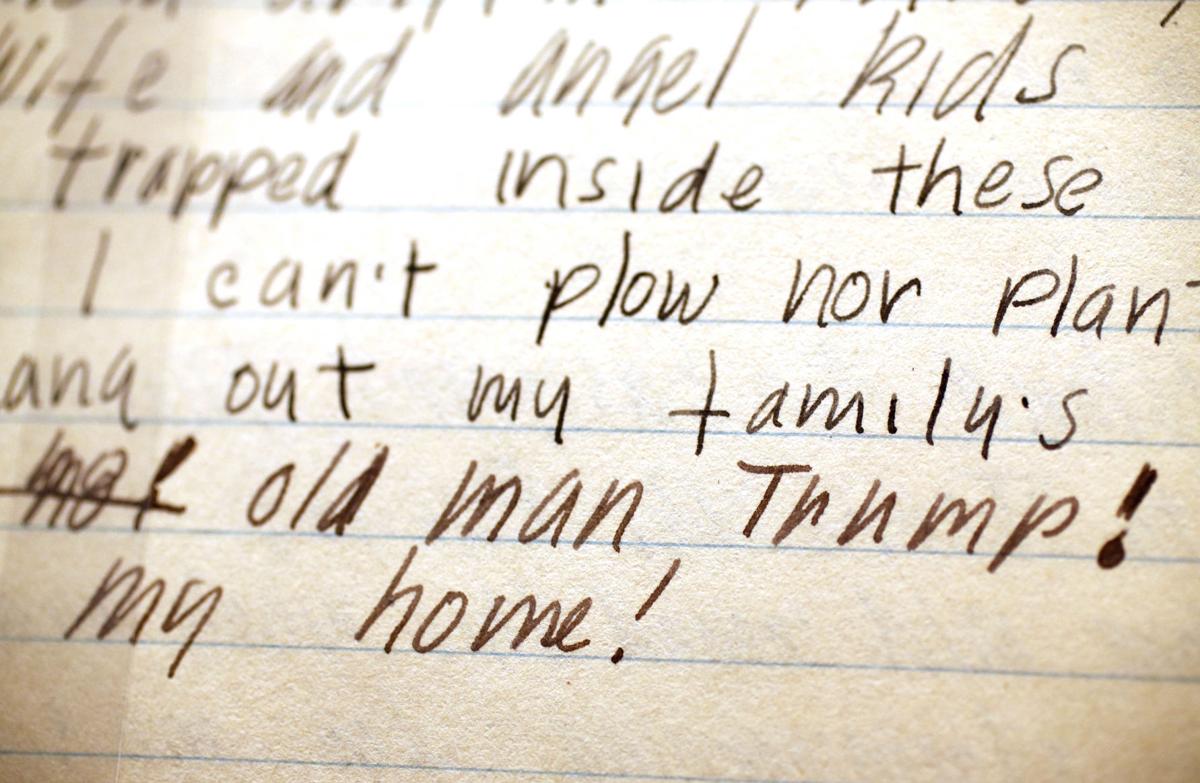 wife and angel kids
trapped inside these
I can't plow nor plan
out my family's
old man Trump!
my home!